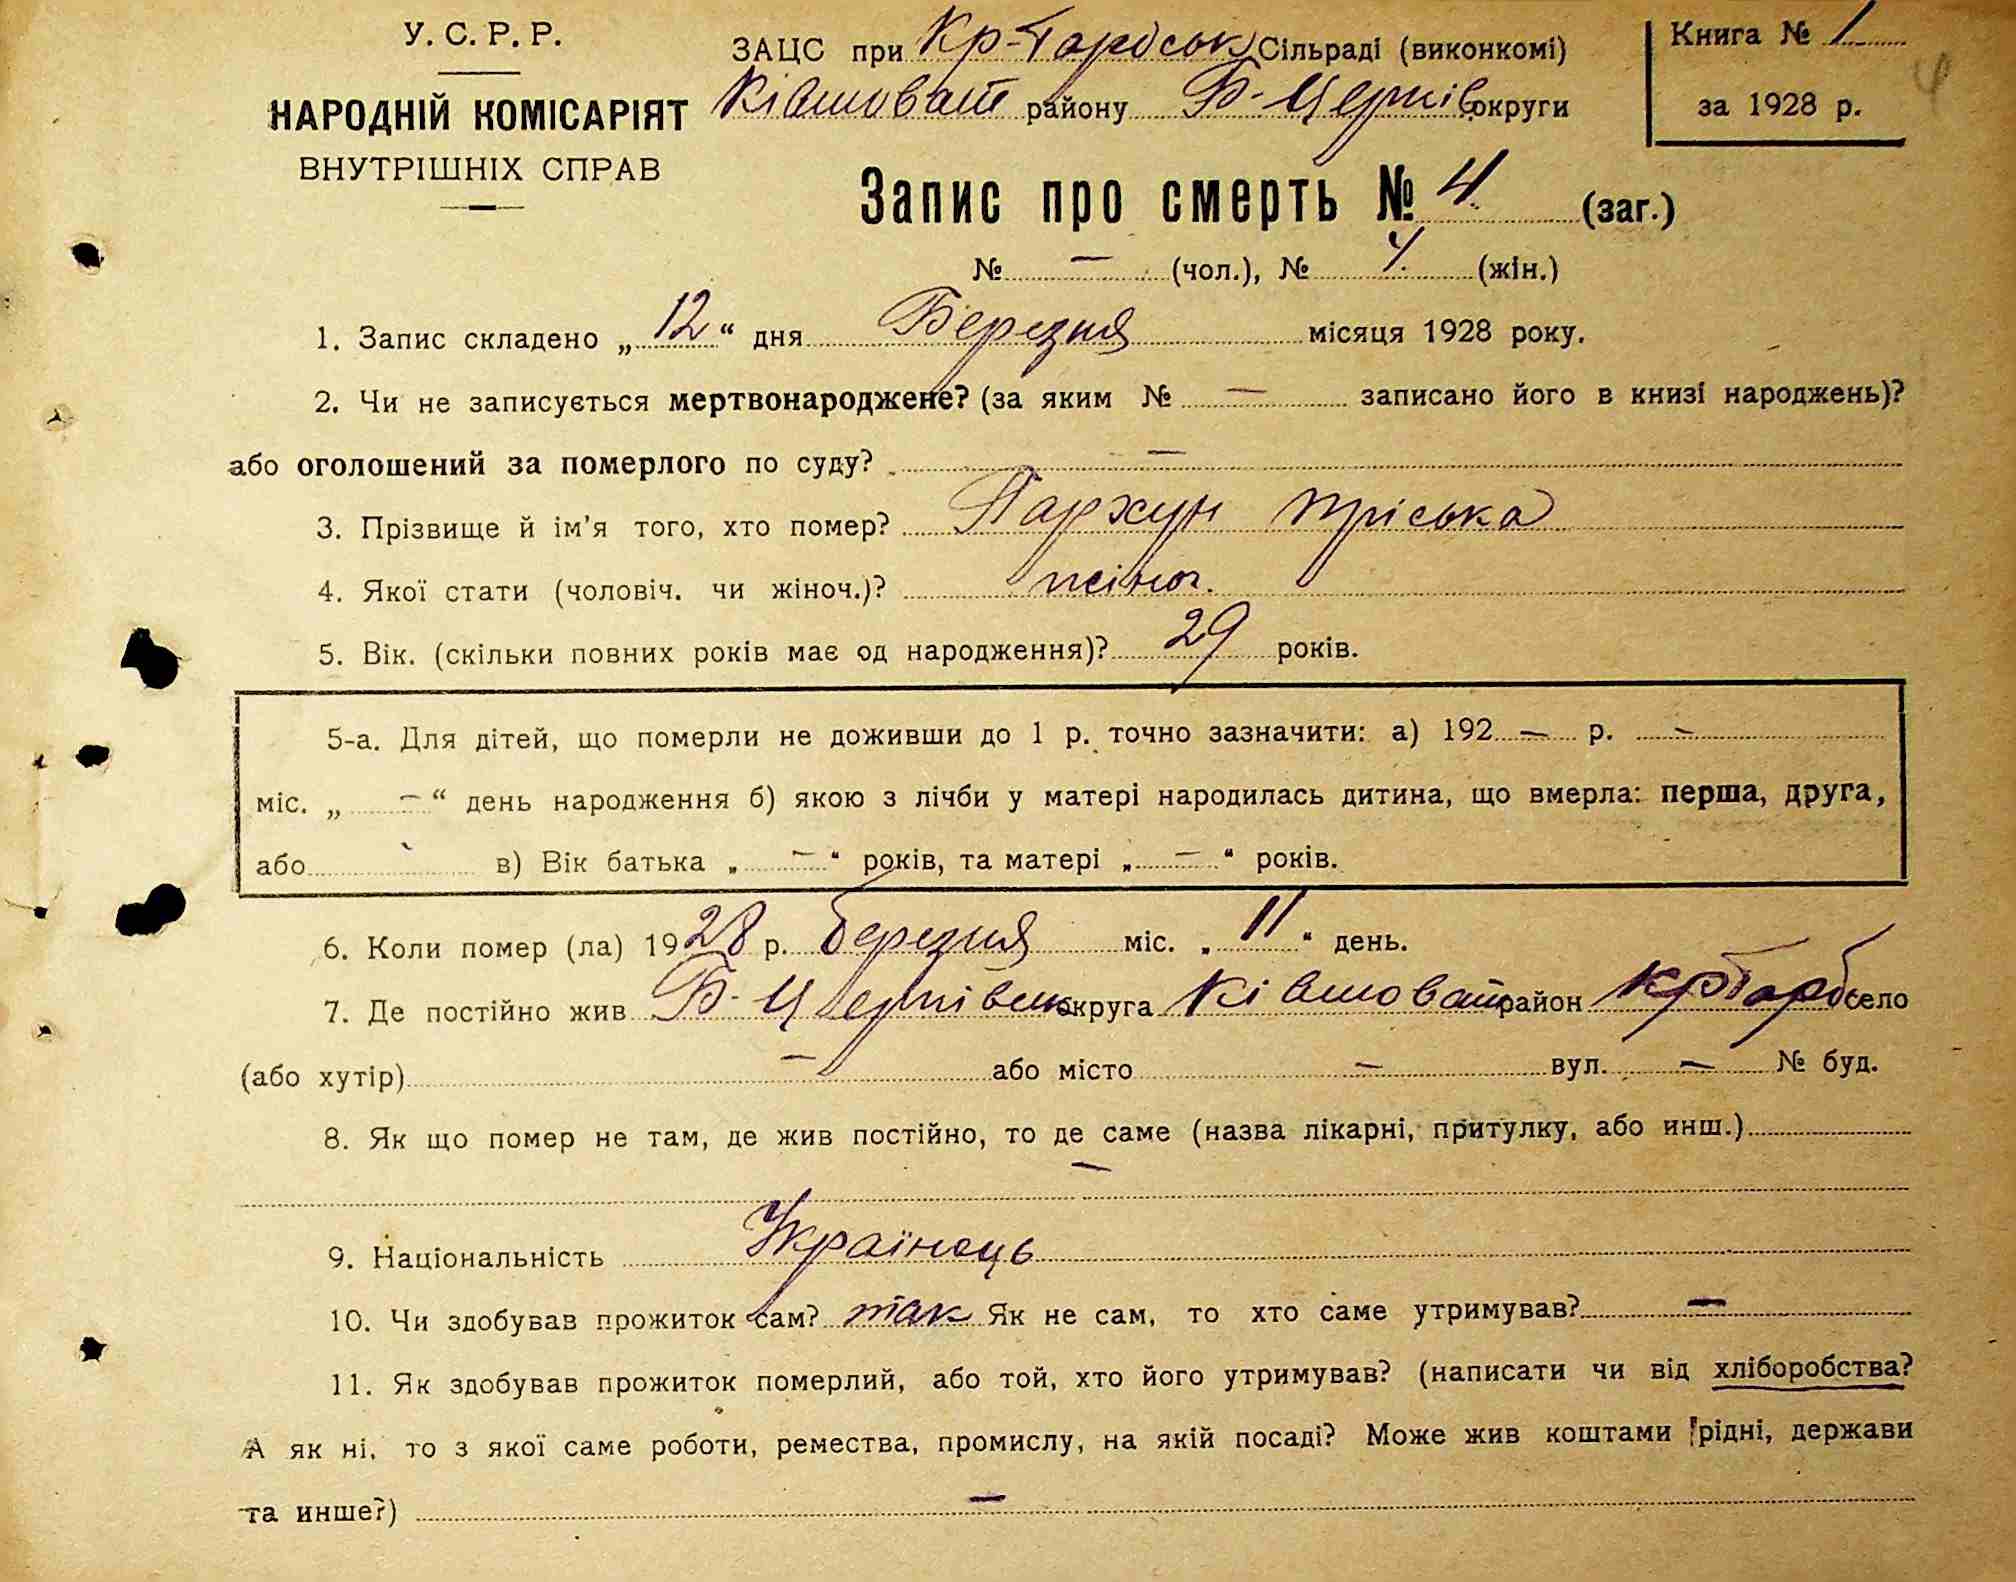 У. С. Р. Р.
НАРОДНІЙ КОМІСАРІЯТ
ВНУТРІШНІХ СПРАВ
ЗАЦС при Кр-Гарбськ Сільраді (виконкомі)
Ківшоват району Б-Церків округи
Книга № 1
за 1928 р.
4
Запис про смерть № 4 (заг.)
№ — (чол.), № 4. (жін.)
1. Запис складено „ 12 “ дня Березня місяця 1928 року.
2. Чи не записується мертвонароджене? (за яким № — записано його в книзі народжень)?
або оголошений за померлого по суду? —
3. Прізвище й ім'я того, хто помер? Пархун Пріська
4. Якої стати (чоловіч. чи жіноч.)? жіноч.
5. Вік. (скільки повних років має од народження)? 29 років.
5-а. Для дітей, що померли не доживши до 1 р. точно зазначити: а) 192 — р. —
міс. „ — “ день народження б) якою з лічби у матері народилась дитина, що вмерла: перша, друга,
або в) Вік батька „ — “ років, та матері „ — “ років.
6. Коли помер (ла) 1928 р. березня міс. „ 11 “ день.
7. Де постійно жив Б-Церківськ округа Ківшоват район КрГарб село
(або хутір) — або місто — вул. — № буд.
8. Як що помер не там, де жив постійно, то де саме (назва лікарні, притулку, або инш.)
—
9. Національність Українець
10. Чи здобував прожиток сам? так Як не сам, то хто саме утримував? —
11. Як здобував прожиток померлий, або той, хто його утримував? (написати чи від хліборобства?
А як ні, то з якої саме роботи, ремества, промислу, на якій посаді? Може жив коштами рідні, держави
та инше?) —